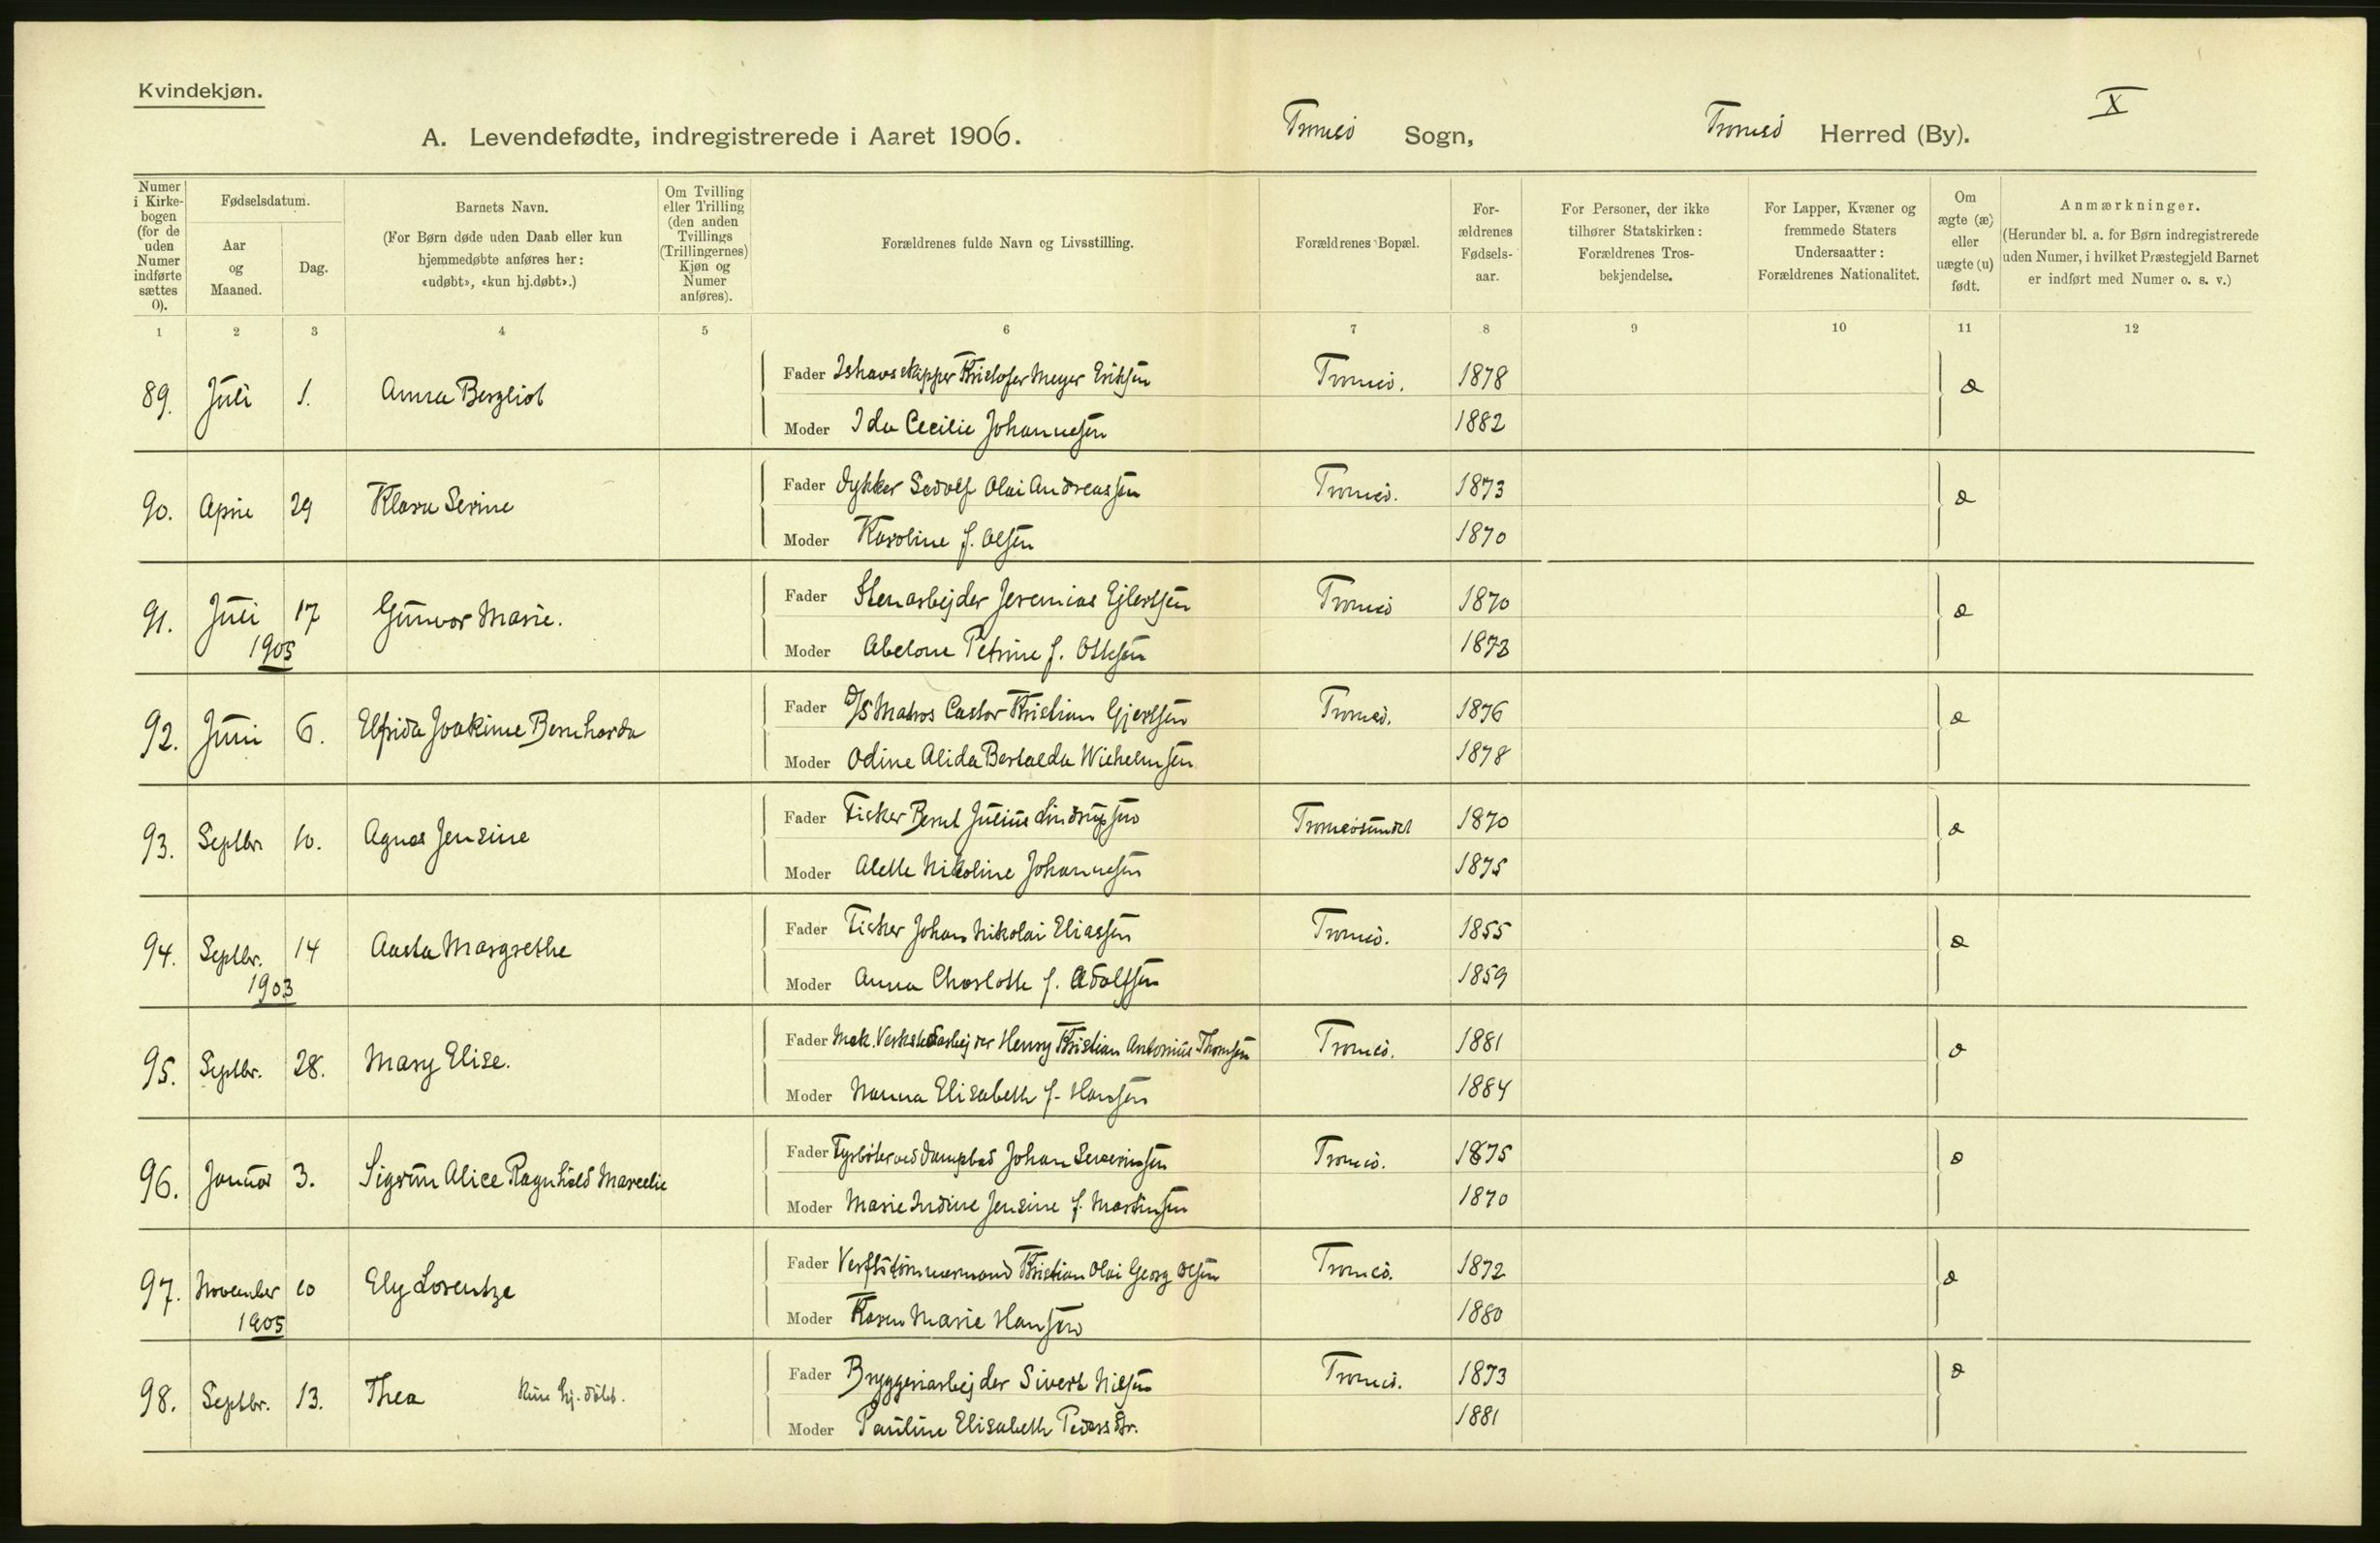 Kvindekjøn.
X
A. Levendefødte, indregistrerede i Aaret 1906. Tromsö Sogn, Tromsö Herred (By).
Numer i Kirke-bogen (for de uden Numer indførte sættes 0).
Fødselsdatum.
Aar og Maaned.
Dag.
Barnets Navn.
(For Børn døde uden Daab eller kun hjemmedøbte anføres her: «udøbt», «kun hj.døbt».)
Om Tvilling eller Trilling (den anden Tvillings (Trillingernes) Kjøn og Numer anføres).
Forældrenes fulde Navn og Livsstilling.
Forældrenes Bopæl.
For-ældrenes Fødsels-aar.
For Personer, der ikke tilhører Statskirken: Forældrenes Tros-bekjendelse.
For Lapper, Kvæner og fremmede Staters Undersaatter: Forældrenes Nationalitet.
Om ægte (æ) eller uægte (u) født.
Anmærkninger.
(Herunder bl. a. for Børn indregistrerede uden Numer, i hvilket Præstegjeld Barnet er indført med Numer o. s. v.)
1 2 3 4 5 6 7 8 9 10 11 12
89. Juli 1. Anna Bergliot Fader Ishavsskipper Kristofer Meyer Eriksen Tromsö. 1878 æ
Moder Ida Cecilie Johannesen 1882
90. April 29 Klara Serine Fader Dykker Sedolf Olai Andreassen Tromsö. 1873 æ
Moder Karoline f. Olsen 1870
91. Juli 17 Gunvor Marie. Fader Stenarbejder Jeremias Ejlertsen Tromsö 1870 æ
1905 Moder Abelone Petrine f. Ottesen 1873
92. Juni 6. Elfrida Joakime Bernharda Fader D/S Matros Castor Kristian Gjertsen Tromsö. 1876 æ
Moder Odine Alida Bertalda Wilhelmsen 1878
93. Septbr 10. Agnes Jensine Fader Fisker Bernt Julius Lindrupsen Tromsösundet 1870 æ
Moder Alette Nikoline Johannesen 1875
94. Septbr. 14 Aasta Margrethe Fader Fisker Johan Nikolai Eliassen Tromsö. 1855 æ
1903 Moder Anna Charlotte f. Adolfsen 1859
95. Septbr. 28. Mary Elise. Fader Mek. Verkstedarbejder Henry Kristian Antonius Thomsen Tromsö. 1881 æ
Moder Nanna Elisabeth f. Hansen 1884
96. Januar 3. Sigrun Alice Ragnhild Marcelie Fader Fyrböter ved Dampbad Johan Severinsen Tromsö. 1875 æ
Moder Marie Indine Jensine f. Martinsen 1870
97. November 10 Ely Lorentze Fader Verftstömmermand Kristian Olai Georg Olsen Tromsö. 1872 æ
1905 Moder Karen Marie Hansen 1880
98. Septbr. 13. Thea Kun hj. döbt. Fader Bryggeriarbejder Sivert Nilsen Tromsö. 1873 æ
Moder Pauline Elisabeth Pedersdtr. 1881